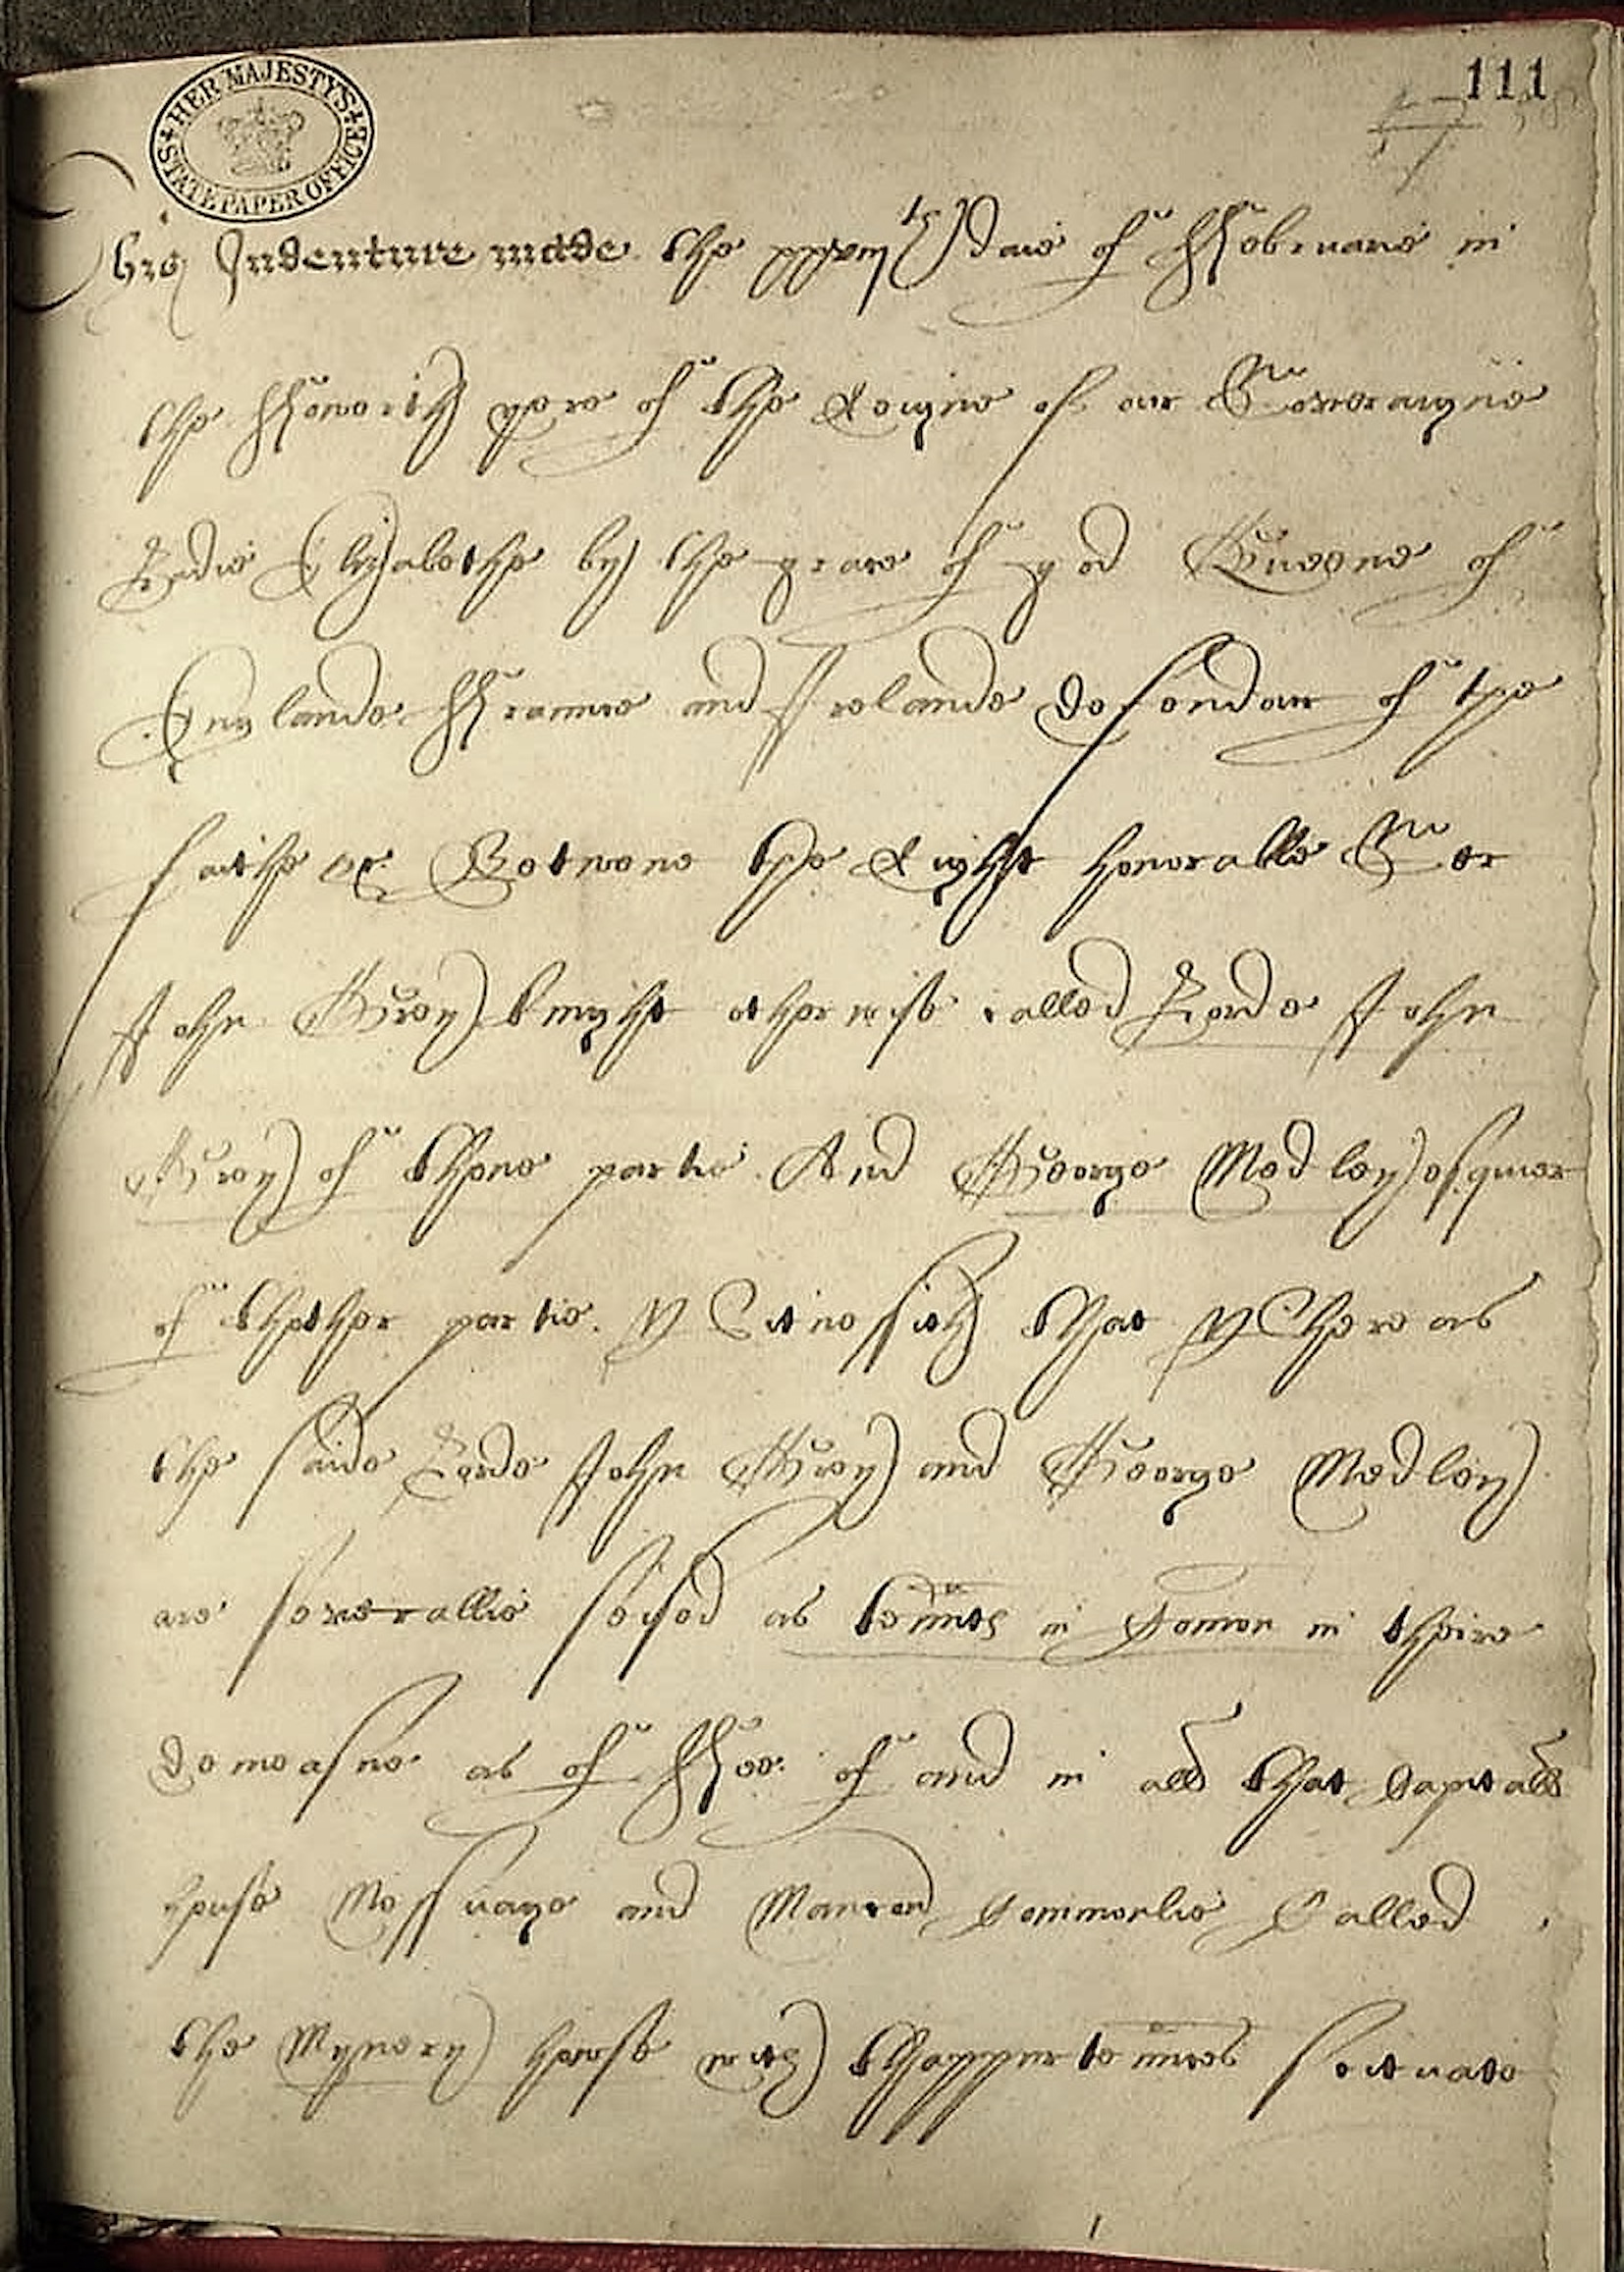 HER MAJESTY'S STATE PAPER OFFICE
111
This Indenture made the xxvijth daie of ffebruarie in
the ffowerth yere of the Reigne of our Soveraigne
Ladie Elizabethe by the grace of god Queene of
Englande ffraunce and Irelande defendour of the
faithe &c. Betwene the Right honorable Sr
John Grey knyght otherwise called Lorde John
Grey of thone partie And George Medley esquier
of thother partie. Witnessith that Whereas
the saide Lorde John Grey and George Medley
are severallie seised as tennts in Comon in theire
demeasne as of ffee of and in all that Capitall
house Messuage and Mancion Commonlie Called
the Mynery house with thappurtennces scituate
1